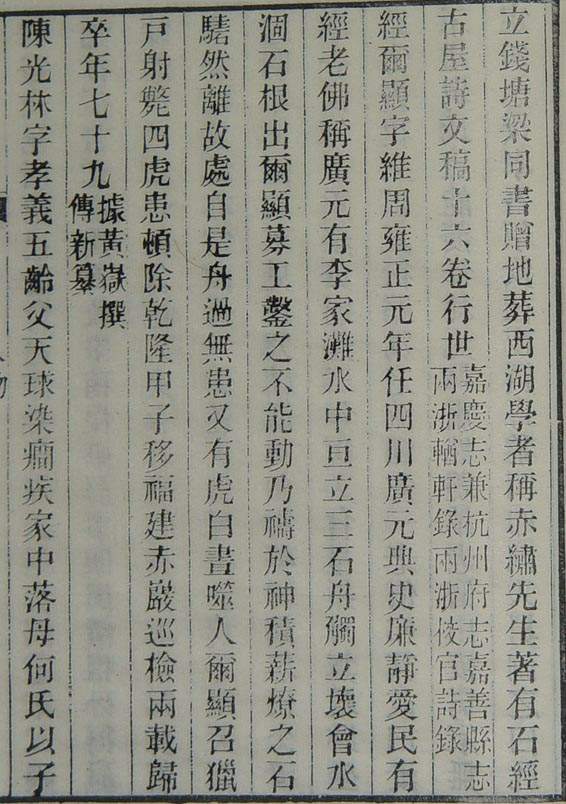 立錢塘梁同書贈地葬西湖學者稱赤繡先生著有石經
古屋詩文稿十六卷行世嘉慶志兼杭州府志嘉善縣志
兩浙輶軒錄兩浙校官詩錄
經爾顯字維周雍正元年任四川廣元典史廉靜愛民有
經老佛稱廣元有李家灘水中亘立三石舟觸立壞會水
涸石根出爾顯募工鑿之不能動乃禱於神積薪燎之石
騞然離故處自是舟過無患又有虎白晝噬人爾顯召獵
戸射斃四虎患頓除乾隆甲子移福建赤巖巡檢兩載歸
卒年七十九據黃嶽撰
傳新纂
陳光林字孝義五齡父天球染癎疾家中落母何氏以子